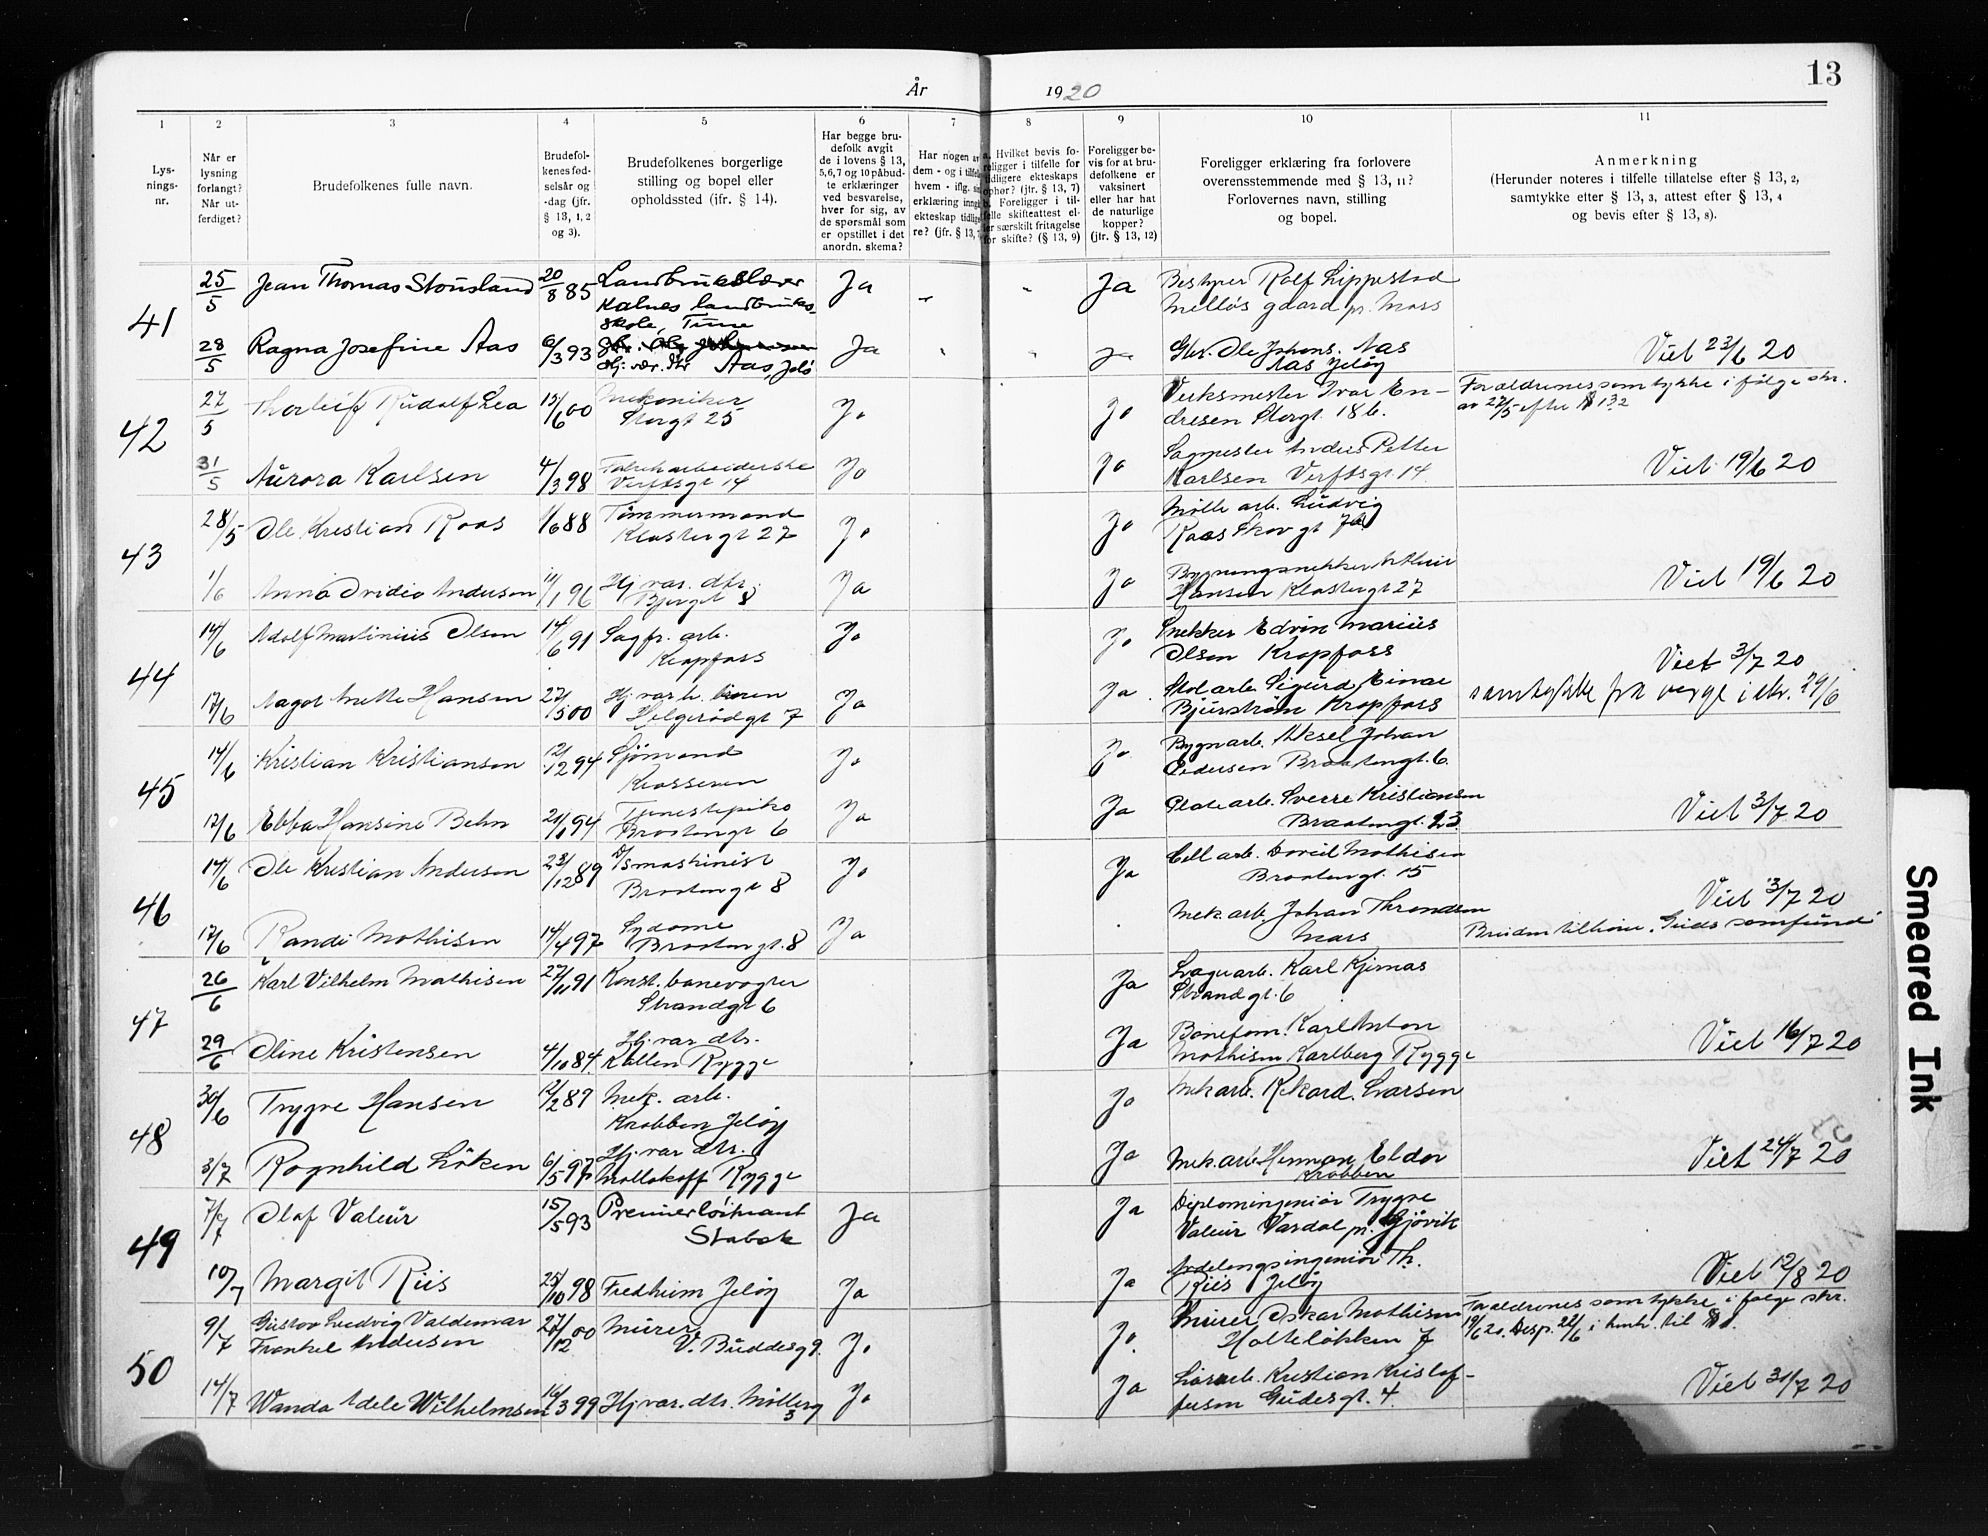 År 1920
13
1 2 3 4 5 6 7 8 9 10 11
Lys-
nings-
nr.
Når er
lysning
forlangt?
Når ut-
ferdiget?
Brudefolkenes fulle navn.
Brudefol-
kenes fød-
selsår og
-dag (jfr.
§ 13, 1, 2
og 3).
Brudefolkenes borgerlige
stilling og bopel eller
opholdssted (jfr. § 14).
Har begge bru-
defolk avgit
de i lovens § 13,
5,6,7 og 10 påbud-
te erklæringer
ved besvarelse,
hver for sig, av
de spørsmål som
er opstillet i det
anordn. skema?
Har nogen av
dem - og i tilfelle
hvem - iflg.
erklæring inngått
ekteskap tidlige-
re? (jfr. § 13,
a. Hvilket bevis fo-
religger i tilfelle for
tidligere ekteskaps
ophør? (jfr. § 13, 7)
b. Foreligger i til-
felle skifteattest el-
ler særskilt fritagelse
for skifte? (§ 13, 9)
Foreligger be-
vis for at bru-
defolkene er
vaksinert
eller har hat
de naturlige
kopper?
(jfr. § 13, 12)
Foreligger erklæring fra forlovere
overensstemmende med § 13, 11?
Forlovernes navn, stilling
og bopel.
Anmerkning
(Herunder noteres i tilfelle tillatelse efter § 13, 2,
samtykke efter § 13, 3, attest efter § 13, 4
og bevis efter § 13, 8).
41
25/5 Jean Thomas Stousland 20/8 85 Landbrukslærer Ja Ja Bestyrer Rolf Lippestad
Kalnes landbruks- Melløs gaard p. Moss
skole, Tune
28/5 Ragna Josefine Aas 6/3 93 Ja Ja Gbr. Ole Johans. Aas Viet 23/6 20
Hj. vær. dtr. Aas, Jelø Aas Jeløy
42
27/5 Thorleif Rudolf Lea 15/6 00 Mekaniker Ja Ja Verksmester Ivar En- Forældrenes samtykke i følge skr.
Storgt 25 dresen Storgt. 18b. av 27/5 efter § 13 2
31/5 Aurora Karlsen 4/3 98 Fabrikarbeiderske Ja Ja Sagmester Anders Petter Viet 19/6 20
Verftsgt 14 Karlsen Verftsgt. 14
43
28/5 Ole Kristian Roos 1/6 88 Tømmermand Ja Ja Mølle arb. Ludvig
Klostergt 27 Roos Skovgt
1/6 Anna Ovidia Andersen 11/1 96 Hj. var. dtr. Ja Ja Bygningssnekker Arthur Viet 19/6 20
Bjergt 8 Hansen Klostergt 27
44
14/6 Adolf Martinius Olsen 14/6 91 Sagfr. arb. Ja Ja Snekker Edvin Marius
Kropfoss Olsen Kropfoss Viet 3/7 20
17/6 Aagot Anette Hansen 27/5 00 Ja Ja Stolarb. Sigurd Einar samtykke fra verge i skr. 29/6
Helgerødgt 7 Bjurstrøm Kropfoss
45
14/6 Kristian Kristiansen 12/12 94 Sjømand Ja Ja Bygnarb. Aksel Johan
Krosseren Pedersen Braatengt. 6
17/6 Ebba Hansine Behn 21/1 94 Tjenestepike Ja Ja Platearb. Sverre Kristiansen Viet 3/7 20
Braatengt 6 Braatengt. 23
46
14/6 Ole Kristian Andersen 23/12 89 D/Smaskinist Ja Ja Cell arb. David Mathisen
Braatengt 8 Braatengt. 15 Viet 3/7 20
17/6 Randi Mathisen 14/4 97 Sydame Ja Mek arb. Johan Throndsen
Braatengt. 8 Moss Bruden tilhører Guds samfund
47
26/6 Karl Vilhelm Mathisen 27/11 91 Konst. banevogter Ja Lagerarb. Karl Kjernas
Strandgt 6 Strandgt. 6
29/6 Oline Kristensen 4/10 84 Hj. var dtr. Ja Baneform. Karl Anton Viet 16/7 20
Kallen Rygge Mathisen Karlberg Rygge
48
30/6 Trygve Hansen 12/2 89 Mek. arb. Ja Mek arb. Rikard Larsen
Krabben Jeløy
3/7 Ragnhild Løken 6/5 97 Hj. var dtr. Ja Mek arb. Herman Eldor Viet 24/7 20
Mollakoff Rygge Krabben
49
7/7 Olaf Valeur 15/5 93 Premierløitnant Ja Ja Diplomingeniør Trygve
Stabek Valeur Vardal p. Gjøvik
10/7 Margit Riis 25/10 98 Fredheim Jeløy Ja Ja Avdelingsingeniør Th. Viet 12/8 20
Riis Jeløy
50
9/7 Gustav Ludvig Valdemar 27/12 00 Murer Ja Ja Murer Oskar Mathisen Forældrenes samtykke i følge skr.
Frankel Andersen V. Buddesg 9. Holteløkken 7 19/6 20. Desp. 22/6 i henh. til §
14/7 Wanda Adele Wilhelmsen 16/3 99 Hj. var. dtr. Møllerg Ja Ja Løsarb. Kristian Kristof- Viet 31/7 20
3 fersen Gudesgt. 4.
Smeared Ink